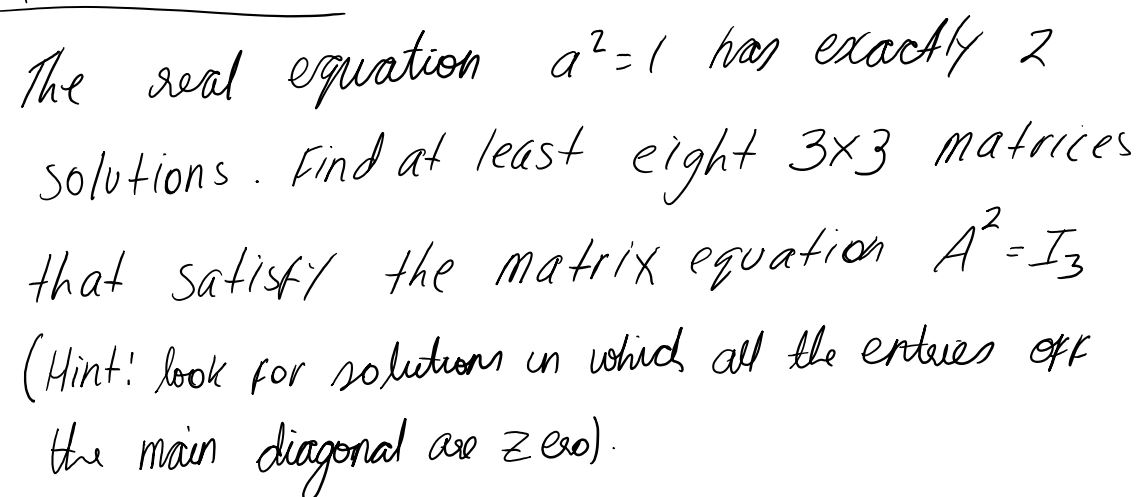 The real equation a² = 1 has exactly 2
solutions. Find at least eight 3×3 matrices
that satisfy the matrix equation A² = I₃
(Hint: look for solutions in which all the enteries off
the main diagonal are zero).